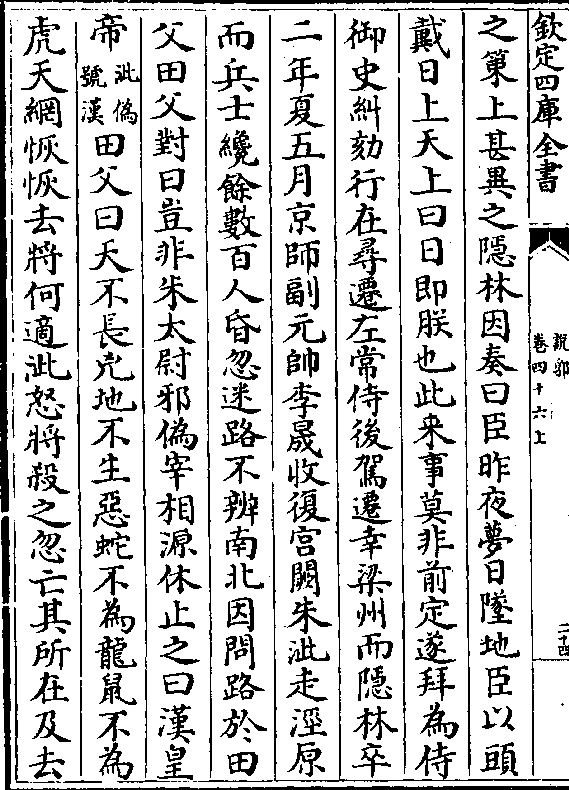 欽定四庫全書
說郛
卷四十六上
二十四
之策上甚異之隱林因奏曰臣昨夜夢日墜地臣以頭
戴日上天上曰日即朕也此来事莫非前定遂拜為侍
御史糾劾行在尋遷左常侍後駕遷幸梁州而隱林卒
二年夏五月京師副元帥李晟收復宫闕朱泚走涇原
而兵士纔餘數百人昏忽迷路不辨南北因問路於田
父田父對曰豈非朱太尉邪偽宰相源休止之曰漢皇
帝泚偽號漢田父曰天不長兇地不生惡蛇不為龍鼠不為
虎天網恢恢去將何適泚怒將殺之忽亡其所在及去